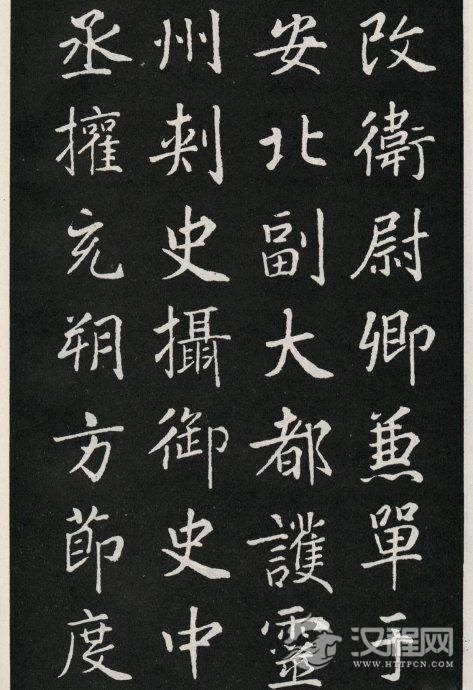 改衛尉卿兼單于
安北副大都護靈
州刺史攝御史中
丞擢充朔方節度
汉程网
WWW.HTTPCN.COM